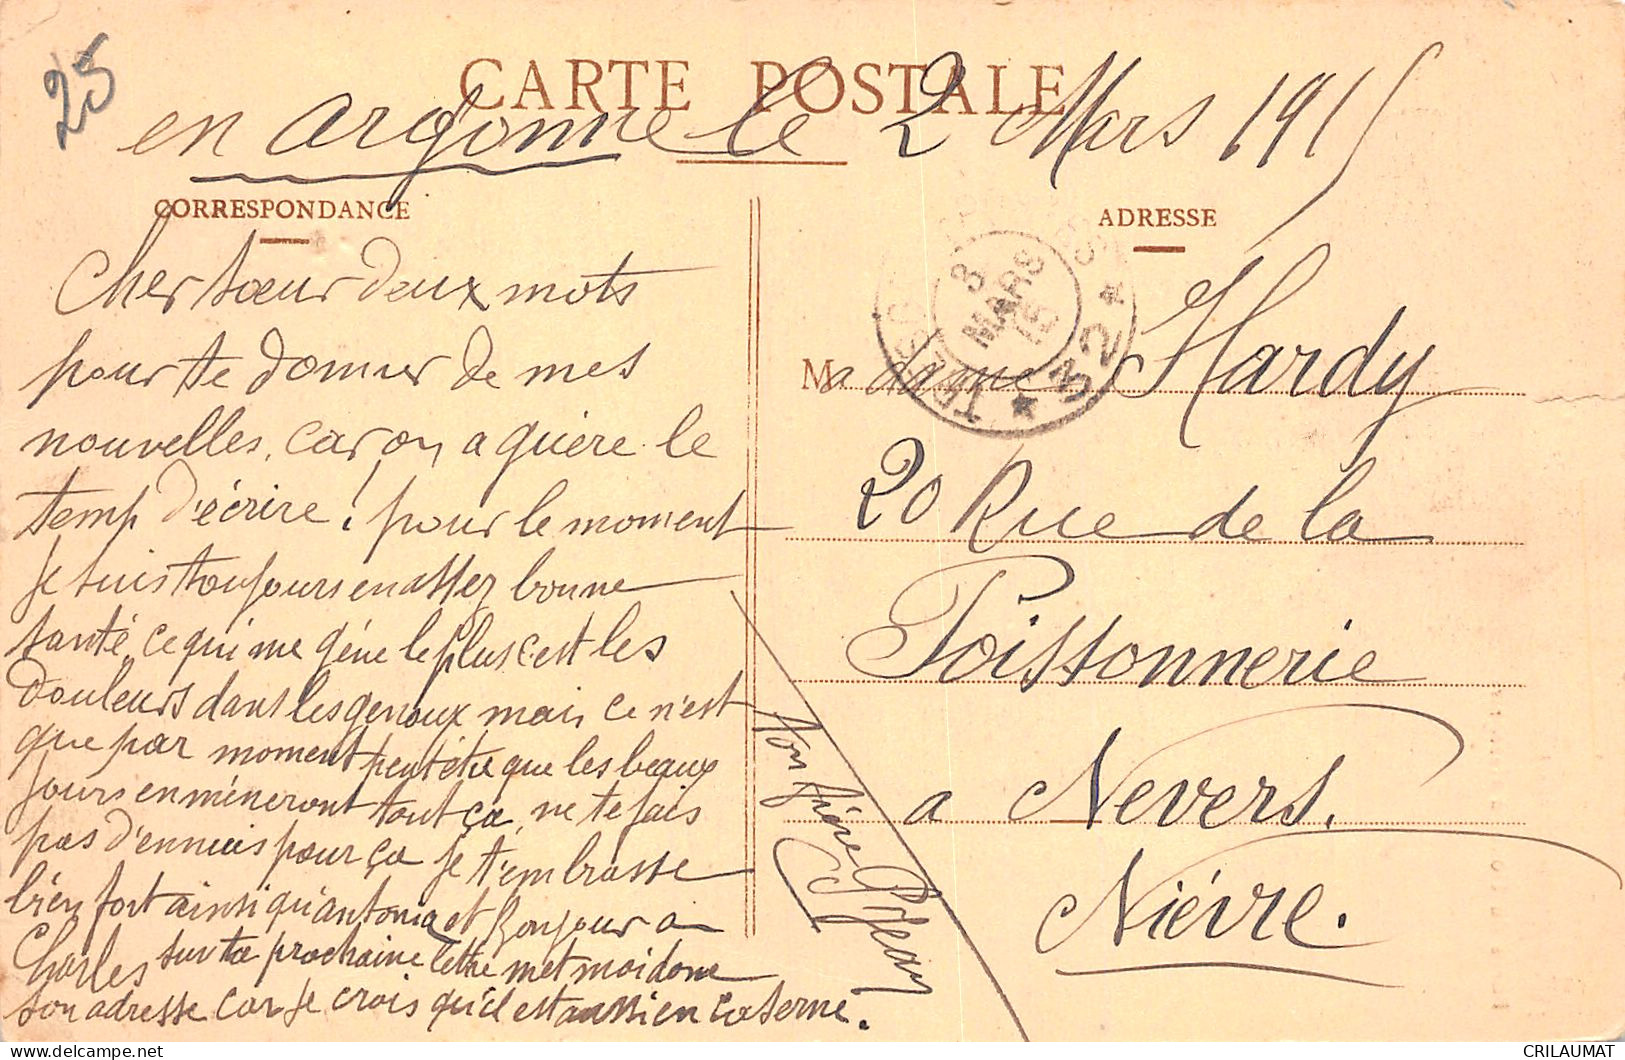 25
CARTE POSTALE
en argonne le 2 Mars 1915
CORRESPONDANCE
Cher sœur deux mots
pour te donner de mes
nouvelles, car on a guière le
temp d'écrire ! pour le moment
Je suis toujours en assez bonne
santé, ce qui me gène le plus c'est les
douleurs dans les genoux mais ce n'est
que par moment peut être que les beaux
Jours enmèneront tout ça, ne te fais
pas d'ennuis pour ça Je t'embrasse
bien fort ainsi qu'antonia et Bonjour a
Charles sur ta prochaine lettre met moi donc
son adresse car Je crois qu'il est aussi en caserne.
Ton frère
Jean
ADRESSE
TRESOR
3
MARS
15
32
Madame Hardy
20 Rue de la
Poissonnerie
a Nevers.
Nièvre.
CRILAUMAT